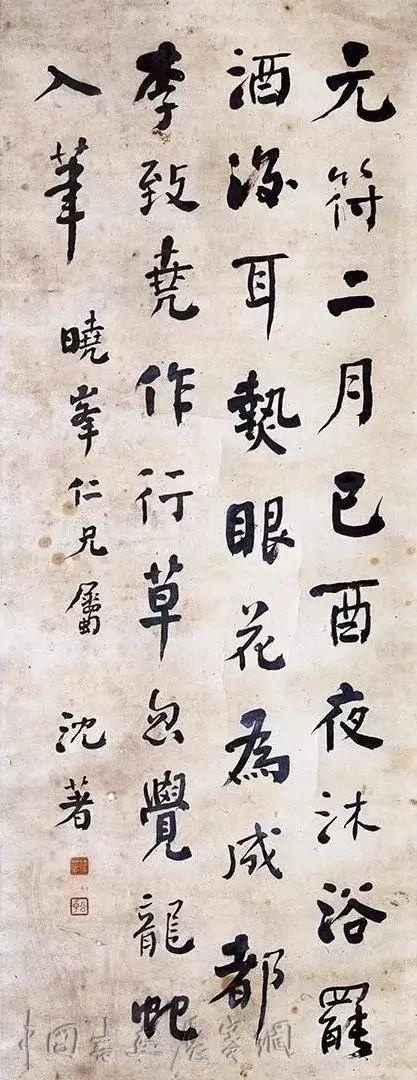 元符二月已酉夜沐浴罷
酒後耳熱眼花為成都
李致堯作行草忽覺龍蛇
入筆
曉峯仁兄屬
沈著